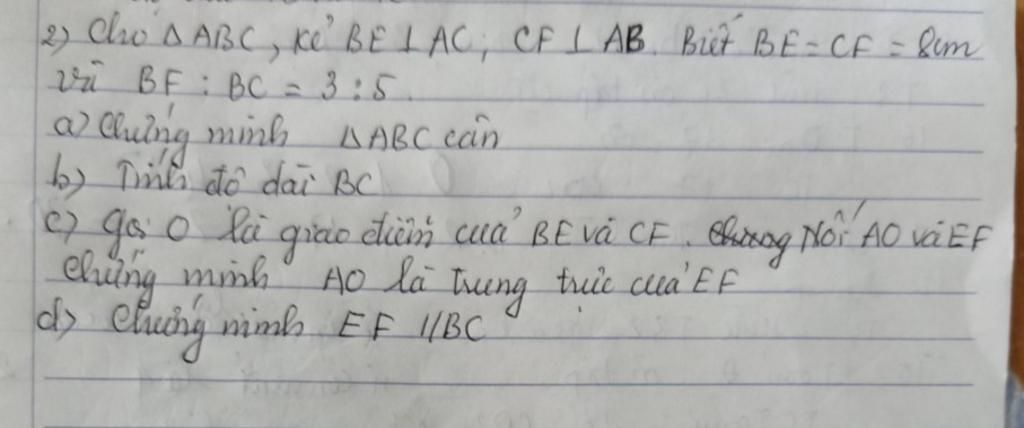 2) Cho △ ABC, kẻ BE ⊥ AC, CF ⊥ AB. Biết BE = CF = 8cm
và BF : BC = 3 : 5.
a) Chứng minh △ABC cân
b) Tính độ dài BC
c) gọi O là giao điểm của BE và CF. Nối AO và EF
chứng minh AO là trung trực của EF
d) Chứng minh EF // BC